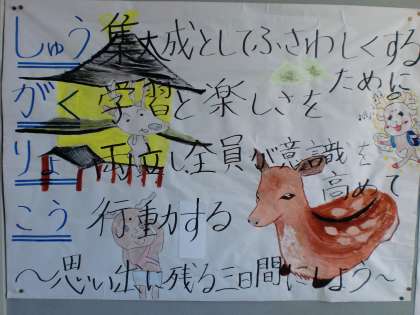 しゅう 集大成としてふさわしくする
ために
がく 学習と楽しさを
りょ 両立し全員が意識を
高めて
こう 行動する
〜思い出に残る三日間にしよう〜